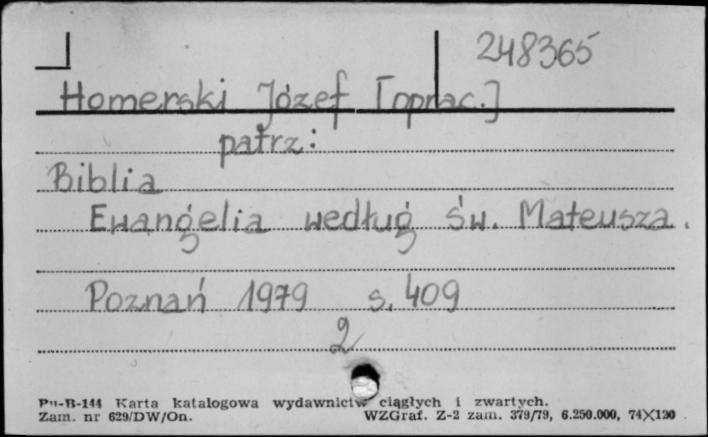 248365
Homerski Józef [oprac.]
patrz:
Biblia
Ewangelia według św. Mateusza.
Poznań 1979 s. 409
2
Pu-B-144 Karta katalogowa wydawnictw ciągłych i zwartych.
Zam. nr 629/DW/On. WZGraf. Z-2 zam. 379/79, 6.250.000, 74×120